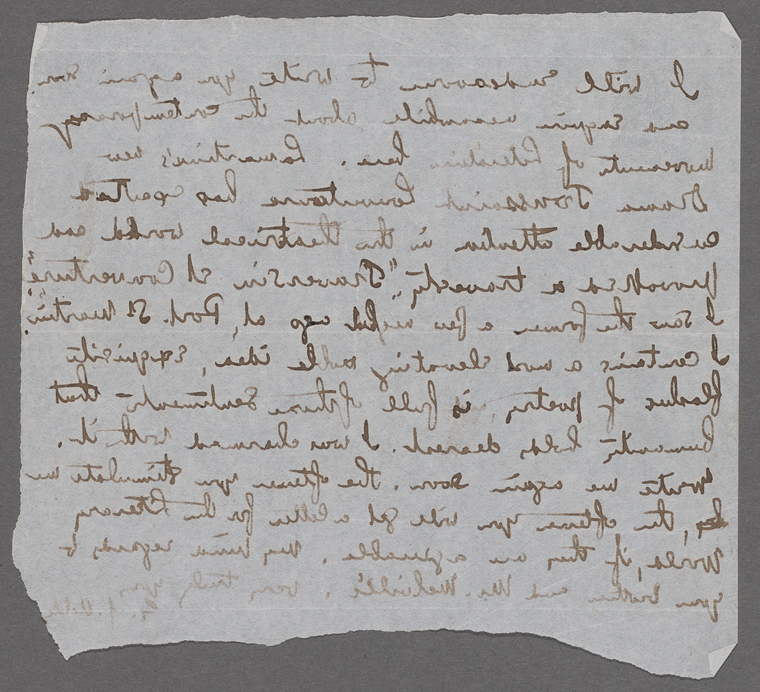 I will endeavour to write you again soon
and enquire meanwhile about the contemporary
movements of Literature here. Lamartine's new
Drama Toussaint Louverture has excited
considerable attention in the theatrical world and
provoked a travesty, "Traversin et Couverture"
I saw the former a few nights ago at, Port. St Martin.
I contains a most elevating noble idea, exquisite
flashes of poetry, is full of those sentiments that
humanity holds dearest. I was charmed with it.
Write me again soon. The oftener you stimulate me
the oftener you will get a letter for the Literary
World, if they are agreeable. My kind regards, to
your brother and Mr. Melville. very truly yrs